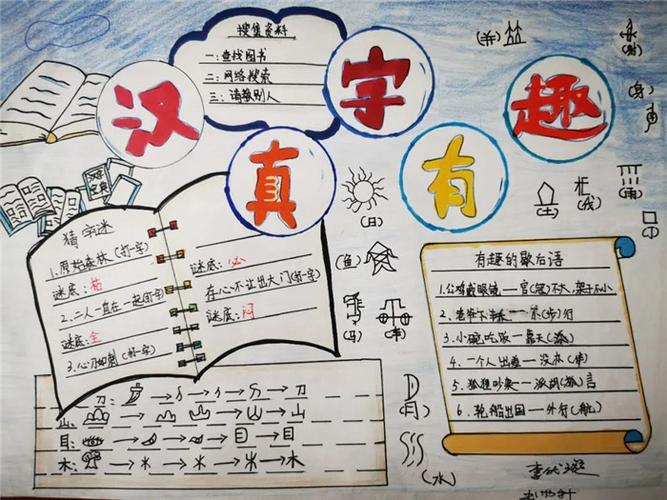 汉字真有趣
搜集资料
一:查找图书
二:网络搜索
三:请教别人
猜字迷
1.原始森林(打一字)
谜底:枯
2.二人一直在一起(打一字)
谜底:全
3.心刀如刺(打一字)
谜底:必
存心不让出大门(打一字)
谜底:闷
刀:刀
山:山
目:目
木:木
(日)
(鱼)
(马)
(月)
(水)
(土)
(戈)
(雨)
(身)
有趣的歇后语
1.公鸡戴眼镜一官(冠)不大,架子不小
3.小碗吃饭一靠天(添)
4.一个人出差一没亦(伴)
5.狐狸吵架一派胡(狐)言
6.轮船出国一外行(航)